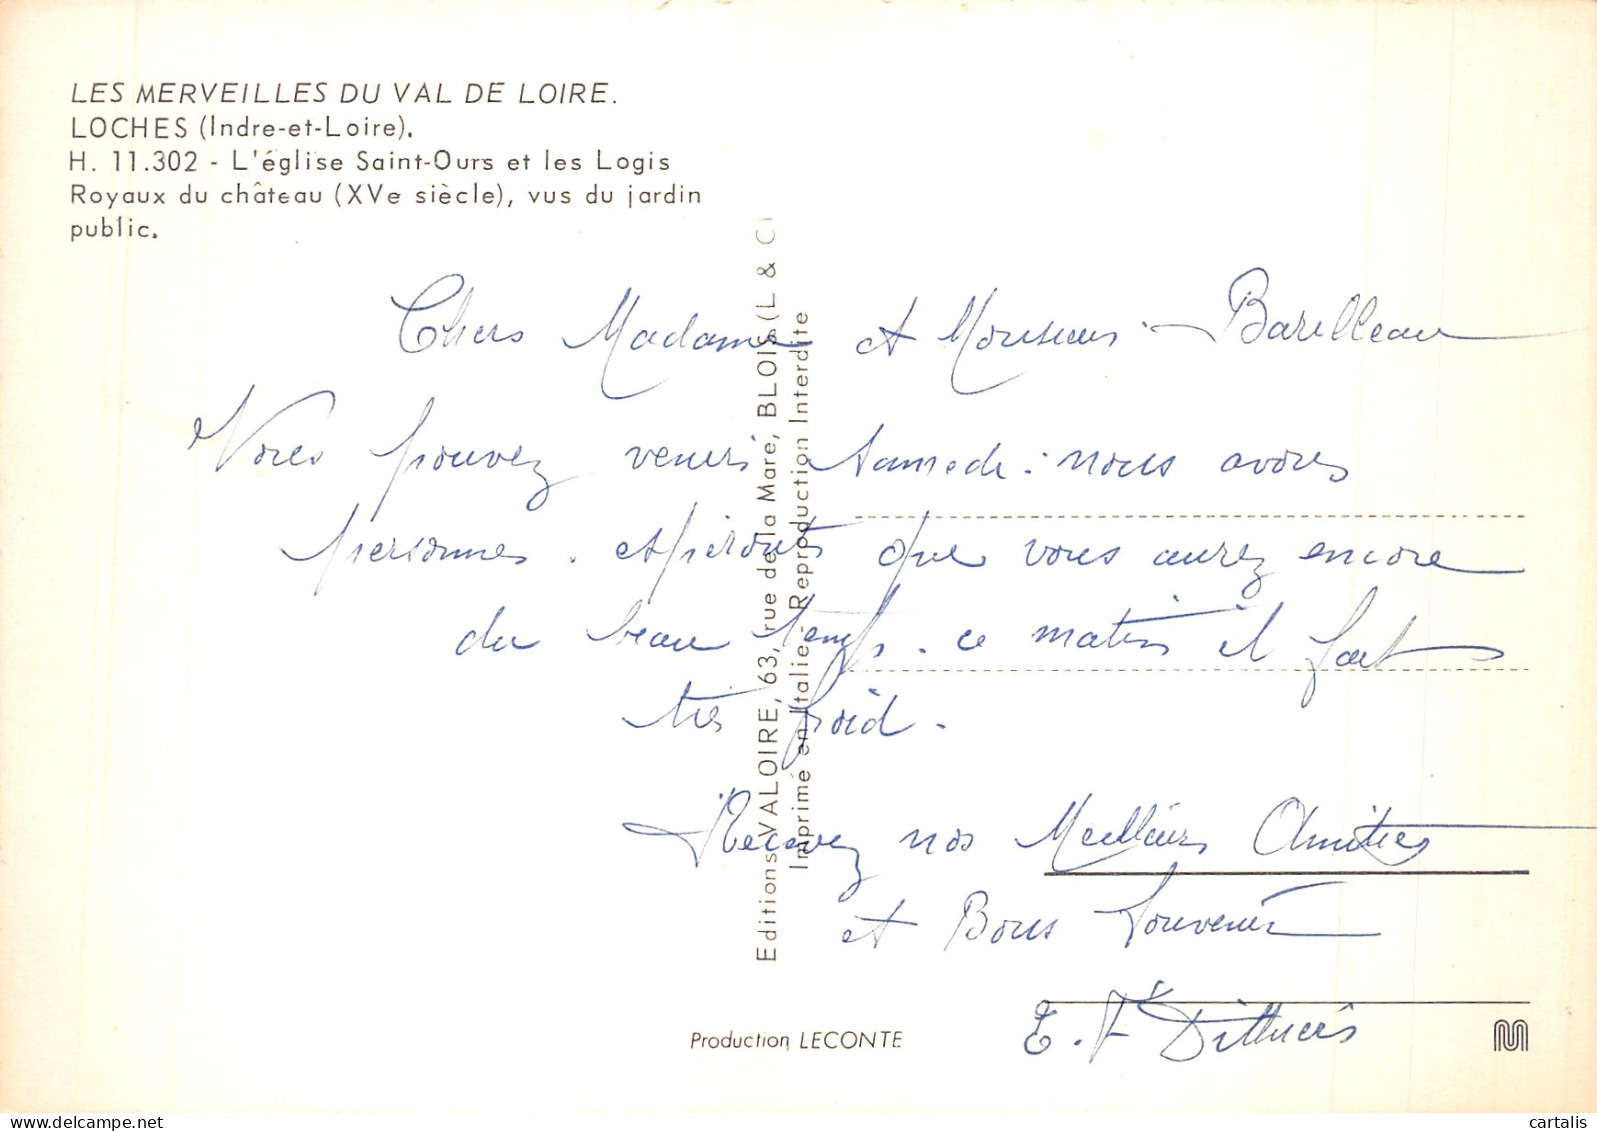 LES MERVEILLES DU VAL DE LOIRE.
LOCHES (Indre-et-Loire).
H. 11.302 - L'église Saint-Ours et les Logis
Royaux du château (XVe siècle), vus du jardin
public.
Editions VALOIRE, 63, rue de la Mare, BLOIS (L & C)
Imprimé en Italie - Reproduction Interdite
Chers Madame et Monsieur Barilleau
Vous pouvez venir Samedi : nous avons
personnes. espérons que vous aurez encore
du beau temps. ce matin il fait
très froid.
Recevez nos Meilleurs Amitiés
et Bons Souvenir
E.
Production LECONTE
cartalis